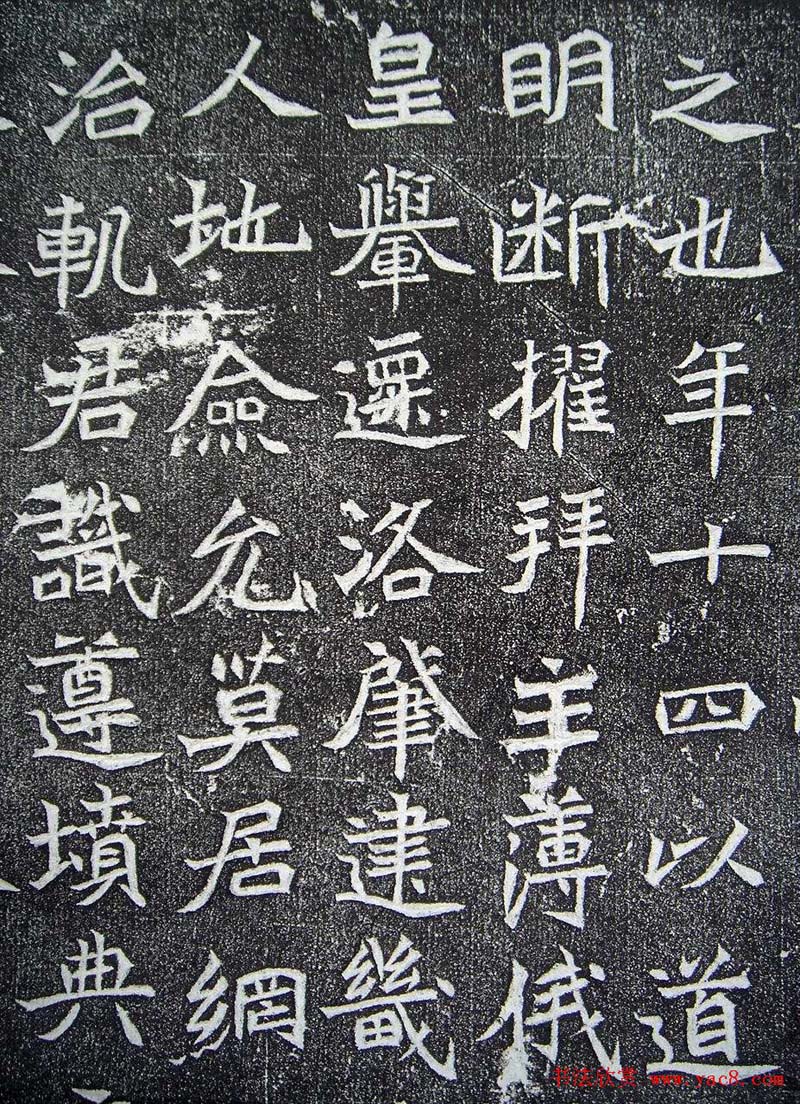 之也年十四以道
眀断擢拜主薄俄
皇轝遷洛肇建畿
人地僉允莫居網
治軌君識遵墳典
书法欣赏 www.yac8.com